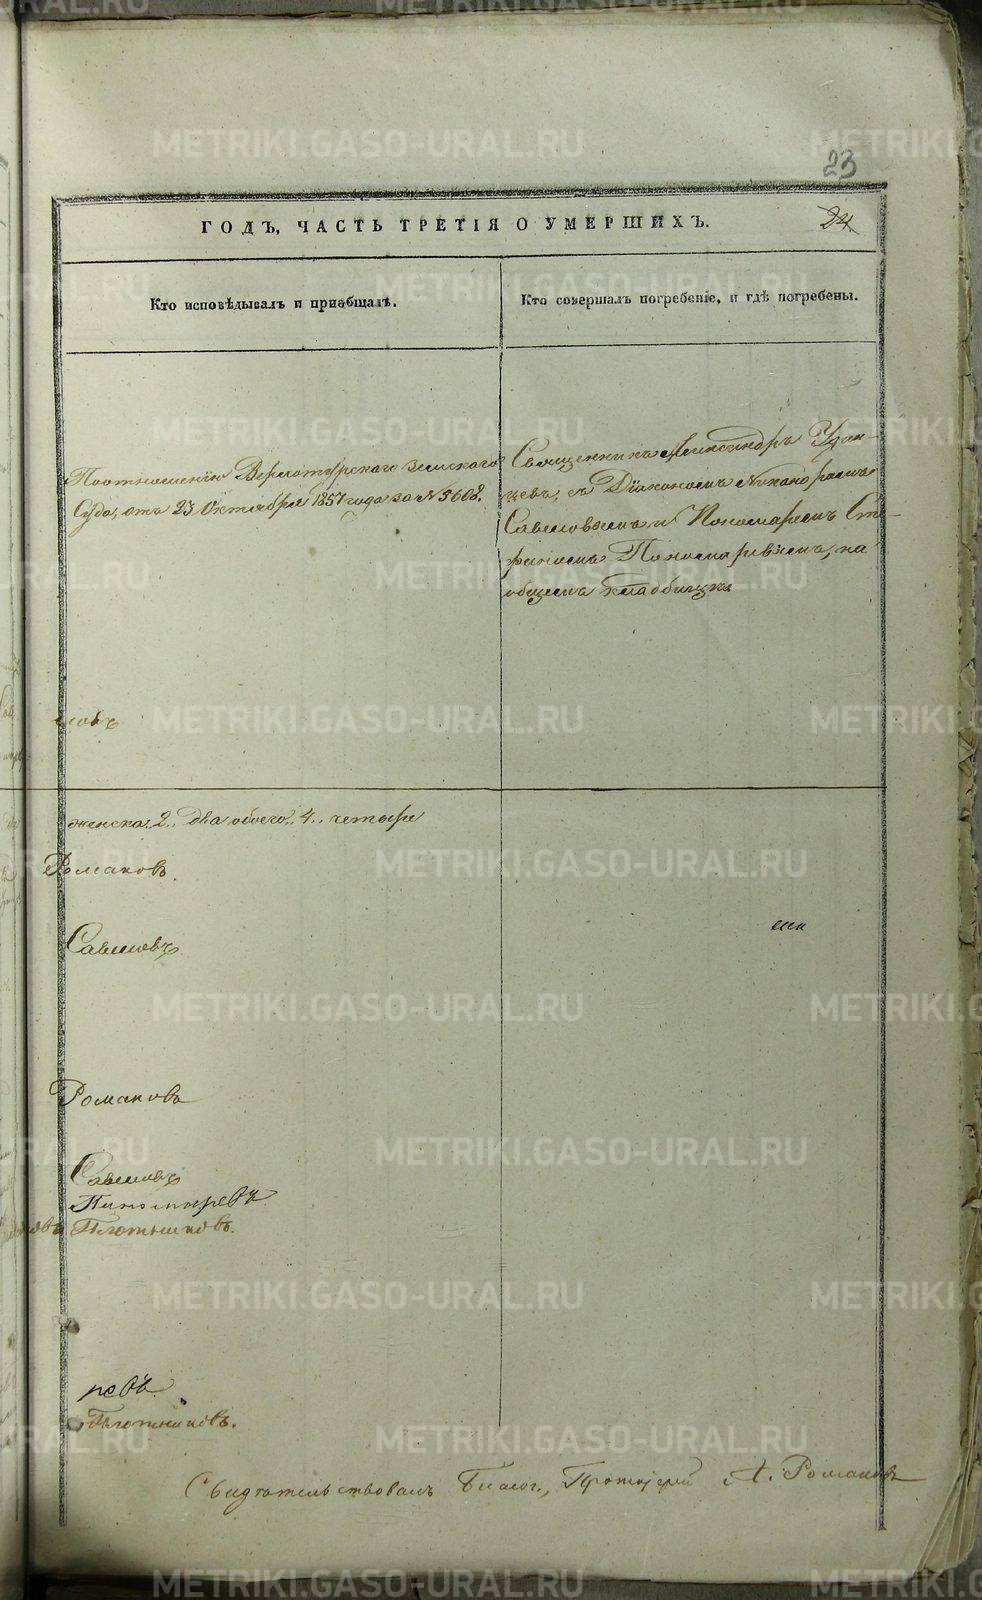 23
24
ГОДЪ, ЧАСТЬ ТРЕТІЯ О УМЕРШИХЪ.
Кто исповѣдывалъ и приобщалъ.
Кто совершалъ погребеніе, и гдѣ погребены.
По отношенію Верхотурскаго Земскаго
Суда, отъ 23 Октября 1857 года за № 5608.
Священникъ Александръ Удин-
цевъ, съ Діакономъ Никаноромъ
Савеловымъ и Пономаремъ Сте-
фаномъ Пономаревымъ, на
общемъ кладбищѣ
ловъ
женска. 2. два обоего. 4. четыре
Романовъ.
Савеловъ
Романовъ
Савеловъ
Пономаревъ
Плотниковъ.
ревъ.
Плотниковъ.
Свидѣтельствовалъ Благоч., Протоіерей А. Романовъ
METRIKI.GASO-URAL.RU